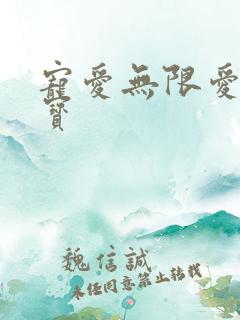 寵愛無限愛
寶
魏信誠
未經同意禁止轉載